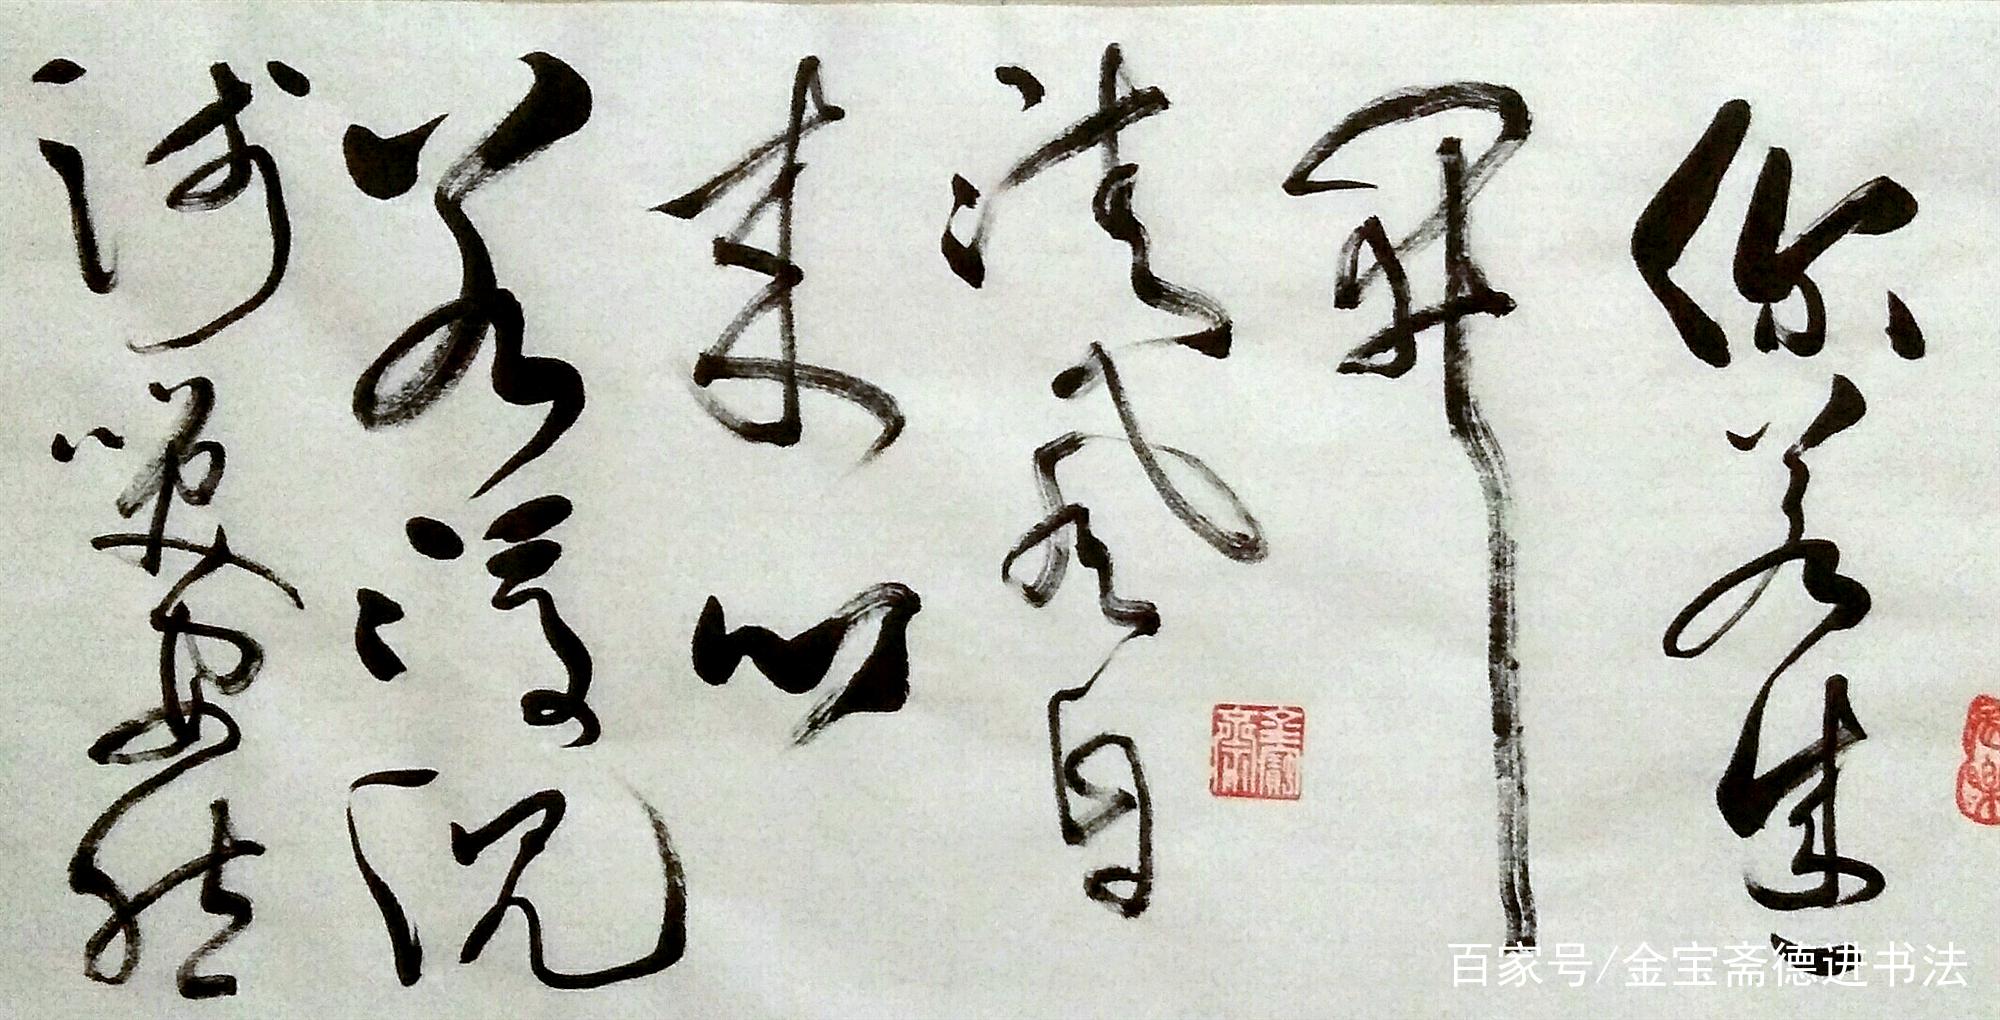 你若盛
开
清风自
来心
若浮沉
浅笑安然
百家号/金宝斋德进书法